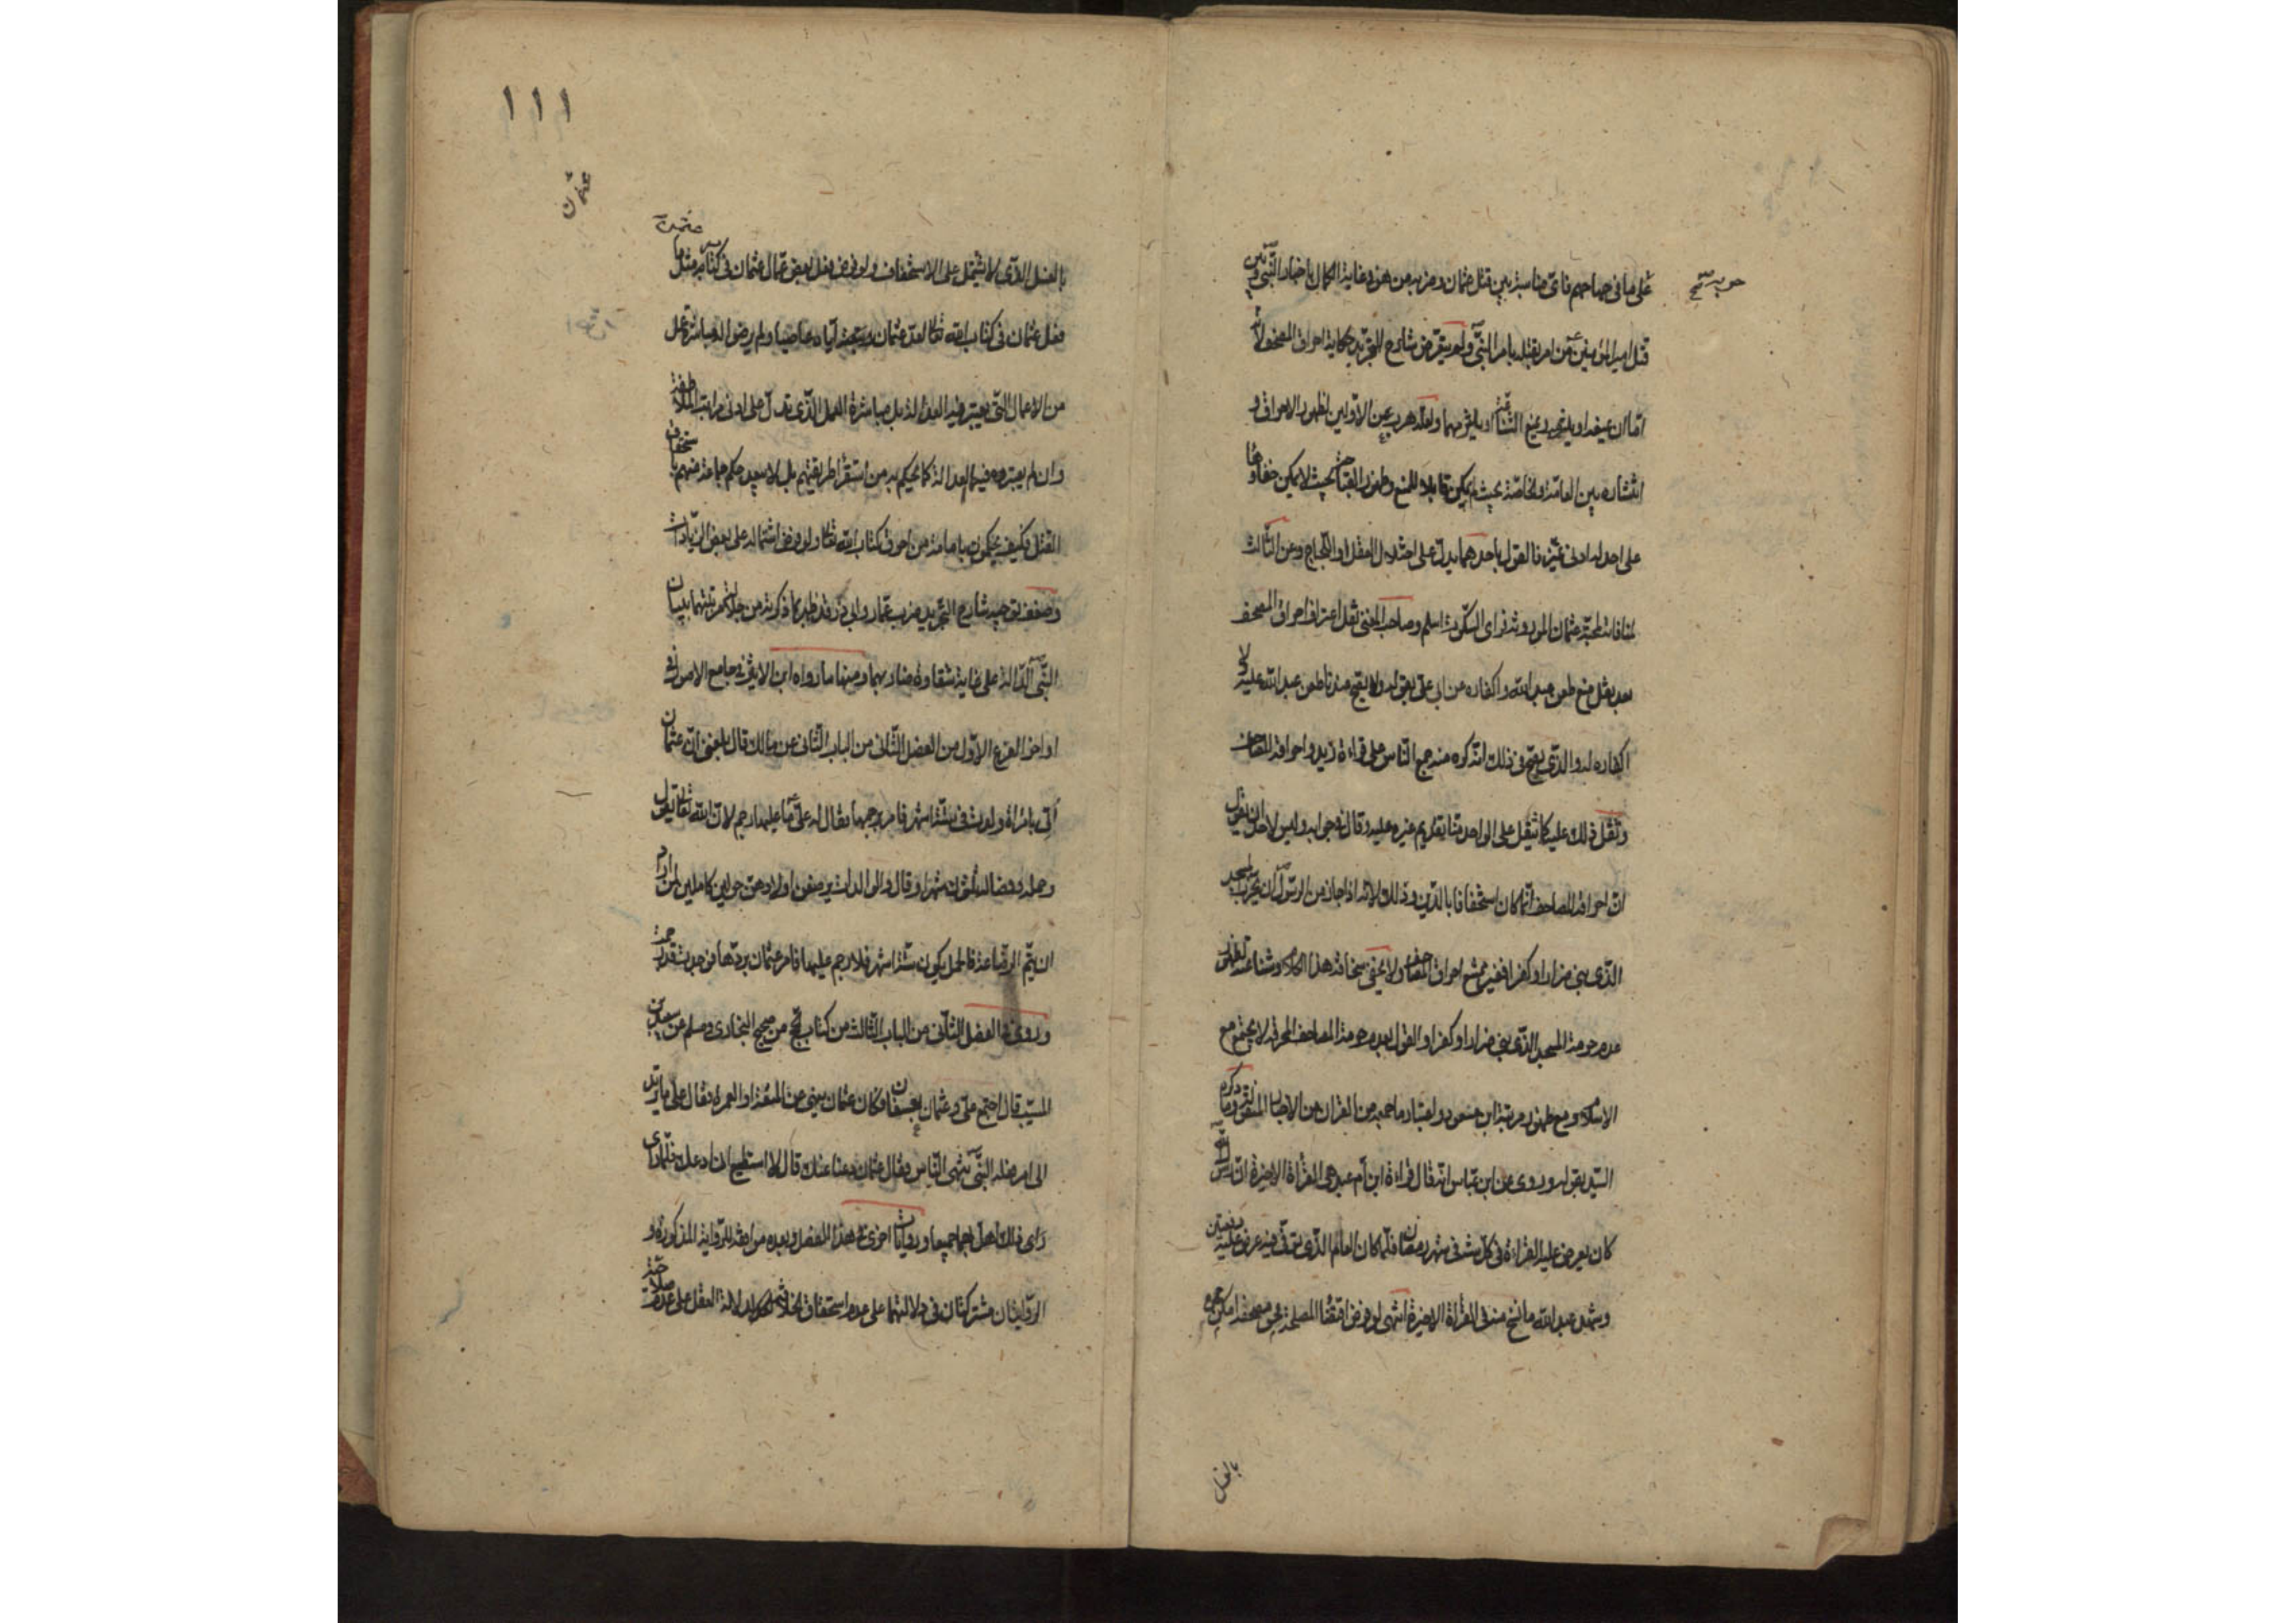 على ما في صحاحهم فاى مناسبة بين قتل عثمان ومن به من هو في غاية الكمال باخبار النبي وبين
قتل امير المؤمنين من امر بقتله بامر النبي ولم يتعرض شارح التجريد حكاية احراق المصحف لانه
اما ان يمنعه او يلتزمه ويمنع الشناعة او يلتزمهما ولعله هرب عن الاولين لظهور الاحراق و
انتشاره بين العامة والخاصة بحيث لم يكن قابلا للمنع وظهور القباحة بحيث لا يمكن خفاؤها
على احد له ادنى تميز فالقول باحدهما يدل على اختلال العقل او اللجاج وعن الثالث
لمنافاته لمحبة عثمان المورثة فراى السكوت اسلم وصاحب المغنى نقل اعتراف احراق المصحف
بعد نقل منع طعن عبد الله واكفاره عن ابى على بقوله ولا يقبح منه ما طعن عبد الله عليه ولا
اكفاره له والذى يصح في ذلك انه كره منه جمع الناس على قراءة زيد واحراقه المصاحف
وثقل ذلك عليه كما يثقل على الواحد منا تقديم غيره عليه وقال في جوابه وليس لاحد ان يقول
ان احراقه المصاحف انما كان استخفافا بالدين وذلك لانه اذا جاز من الرسول ان يخرب المسجد
الذى بنى ضرارا وكفرا فغير ممتنع احراق المصاحف ولا يخفى سخافة هذا الكلام وشناعته لظهور
عدم حرمة المسجد الذى بنى ضرارا وكفرا والقول بعدم حرمة المصاحف المحرقة لا يجتمع مع
الاسلام ومع ظهور مرتبة ابن مسعود واعتبار ما جمعه من القران من الاخبار المنقولة وما ذكره
السيد بقوله وروى عن ابن عباس انه قال قراءة ابن ام عبد هي القراءة الاخيرة ان رسول الله
كان يعرض عليه القراءة في كل سنة في شهر رمضان فلما كان العام الذى توفى فيه عرض عليه دفعتين
وشهد عبد الله ما نسخ منه في القراءة الاخيرة انتهى لو فرض اقتضاء المصلحة محو مصحفه امكن محوه
بالغسل
١١١
بالغسل الذى لا يشتمل على الاستخفاف ولو فرض فعل بعض عمال عثمان في كتابه مثل ما
فعل عثمان في كتاب الله تعالى لعد عثمان اياه عاصيا ولم يرض له مباشرة عمل
من الاعمال التى يعتبر فيه العدالة بل مباشرة العمل الذى تدل على ادنى مراتب
وان لم يعتبر فيها العدالة كما يحكم به من استقرأ طريقتهم بل لا يبعد حكم جماعة منهم باستحقاق
القتل فكيف يحكمون بامامة من احرق كتاب الله تعالى ولو فرض اشتماله على بعض الزيادات
وضعف توجيه شارح التجريد ضرب عمار وابى ذر قد ظهر مما ذكرته من جلالة مرتبتهما ببيان
النبى الدالة على غاية شقاوة ضاربهما ومنها ما رواه ابن الاثير في جامع الاصول في
اواخر الفرع الاول من الفصل الثانى من الباب الثانى عن مالك قال بلغنى ان عثمان
اتى بامراة ولدت في ستة اشهر فامر برجمها فقال له على ما عليها رجم لان الله تعالى يقول
وحمله وفصاله ثلثون شهرا وقال والوالدات يرضعن اولادهن حولين كاملين لمن اراد
ان يتم الرضاعة فالحمل يكون ستة اشهر فلا رجم عليها فامر عثمان بردها فوجدت قد رجمت
وروى في الفصل الثانى من الباب الثالث من كتاب الحج من صحيح البخارى ومسلم عن سعيد بن
المسيب قال اجتمع على وعثمان بعسفان وكان عثمان ينهى عن المتعة او العمرة فقال على ما تريد
الى امر فعله النبى تنهى الناس فقال عثمان دعنا عنك قال لا استطيع ان ادعك فلما
راى ذلك اهل بهما جميعا وروايات اخرى في هذا الفصل وبعده موافقة للرواية المذكورة و
الروايتان مشتركتان في دلالتهما على عدم استحقاق الخلافة لدلالة العقل على عدم صلاحية